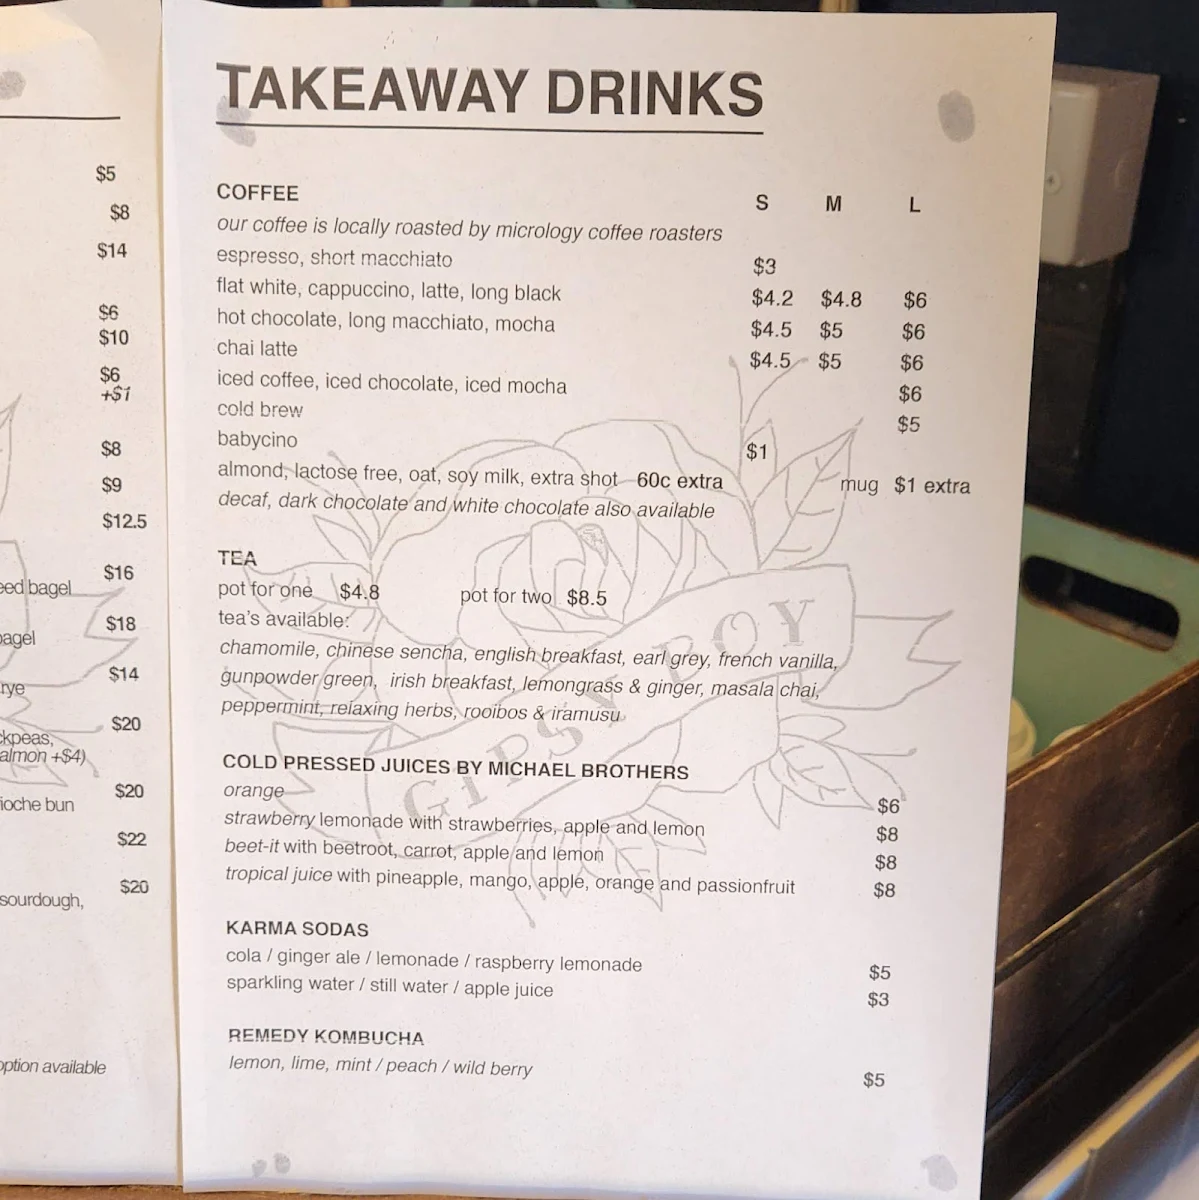 $5
$8
$14
$6
$10
$6
+$1
$8
$9
$12.5
$16
bagel
$18
$14
rye
$20
+$4)
$20
bun
$22
$20
sourdough,
option available
TAKEAWAY DRINKS
COFFEE S M L
our coffee is locally roasted by micrology coffee roasters
espresso, short macchiato $3
flat white, cappuccino, latte, long black $4.2 $4.8 $6
hot chocolate, long macchiato, mocha $4.5 $5 $6
chai latte $4.5 $5 $6
iced coffee, iced chocolate, iced mocha $6
cold brew $5
babycino $1
almond, lactose free, oat, soy milk, extra shot 60c extra mug $1 extra
decaf, dark chocolate and white chocolate also available
TEA
pot for one $4.8 pot for two $8.5
tea's available:
chamomile, chinese sencha, english breakfast, earl grey, french vanilla,
gunpowder green, irish breakfast, lemongrass & ginger, masala chai,
peppermint, relaxing herbs, rooibos & iramusu
GIPSY BOY
COLD PRESSED JUICES BY MICHAEL BROTHERS
orange $6
strawberry lemonade with strawberries, apple and lemon $8
beet-it with beetroot, carrot, apple and lemon $8
tropical juice with pineapple, mango, apple, orange and passionfruit $8
KARMA SODAS
cola / ginger ale / lemonade / raspberry lemonade $5
sparkling water / still water / apple juice $3
REMEDY KOMBUCHA
lemon, lime, mint / peach / wild berry $5